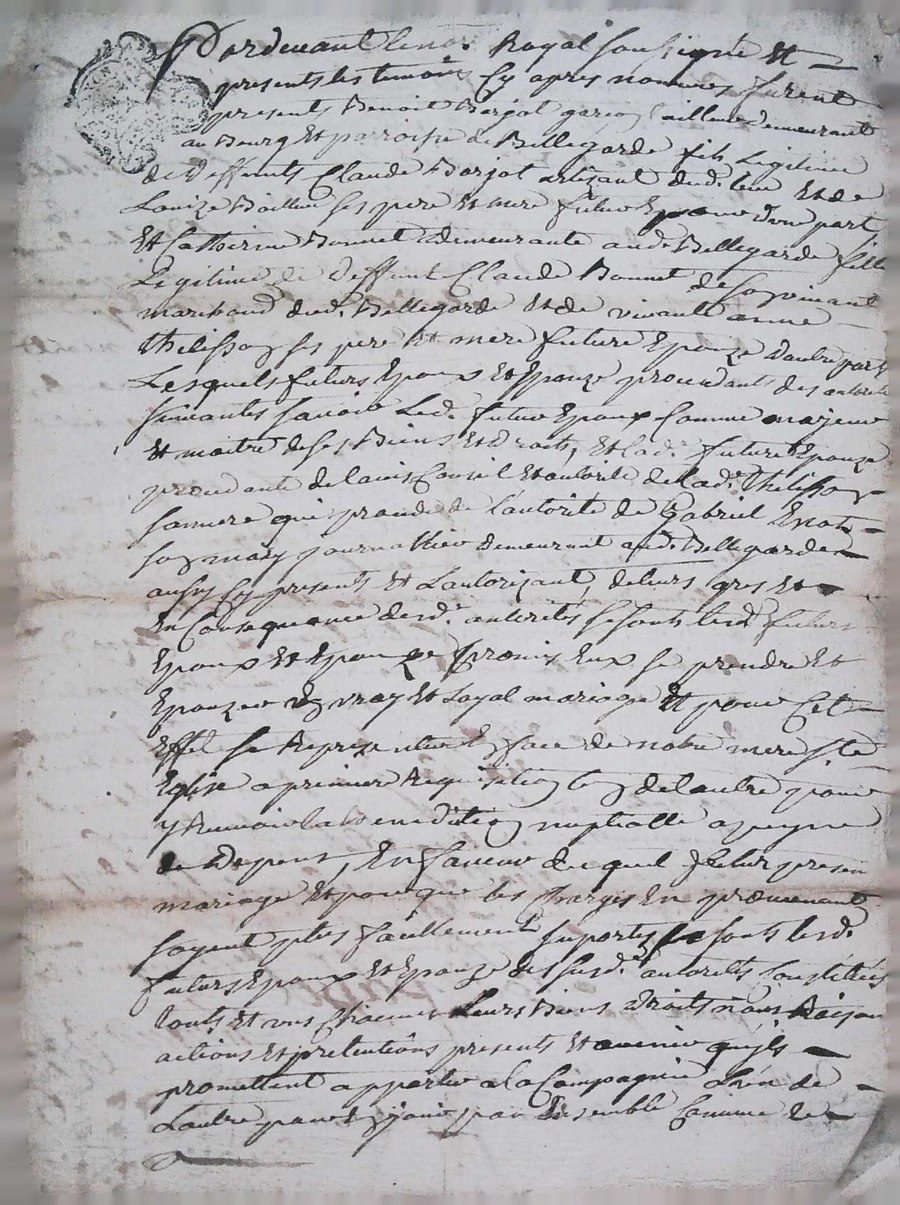 Pardevant le no.re Royal soussigné Et
presents les temoins Cy apres nommés furent
presents Benoit Barjot garçon tailleur demeurant
au Bourg Et parroisse de Bellegarde fils Legitime
de deffunts Claude Barjot artizant dud. lieu Et de
Louize ses pere Et mere futur Epoux d'une part
Et Catherine Bonnet demeurante aud. Bellegarde fille
Legitime de deffunt Claude Bonnet de son vivant
marchand dud. Bellegarde Et de vivante anne
thelisson ses pere Et mere future Epouze d'autre part
Lesquels futurs Epoux Et Epouze procedants des autorités
suivantes savoir Led. futur Epoux Comme majeur
Et maitre de ses Biens Et droits, Et lad. future Epouze
procedante de l'avis Conseil Et autorité de lad. thelisson
sa mere qui procede de l'autorité de Gabriel
son mary journallier demeurant aud. Bellegarde
aussy Cy presents Et L'autorizant, de leurs gres Et
En Consequance desd. autorités se sonts lesd. futurs
Epoux Et Epouze promis Eux se prendre Et
Epouzer En vray Et Loyal mariage Et pour Cet
Effet se Representer En face de notre mere Ste
Eglise a premiere Requisition l'un de l'autre pour
y Recevoir la Benediction nuptialle a peyne
de Depens, En faveur duquel futur presen
mariage Et pour que les Charges En provenant
soyent plus facillement suportés se sonts lesd.
futurs Epoux Et Epouze des susd. autorités Constitués
touts Et uns Chacuns Leurs Biens Droits noms Raisons
actions Et pretentions presents Et avenir qu'ils
promettent apporter a la Compagnie L'un de
L'autre pour En jouir par Ensemble Comme de